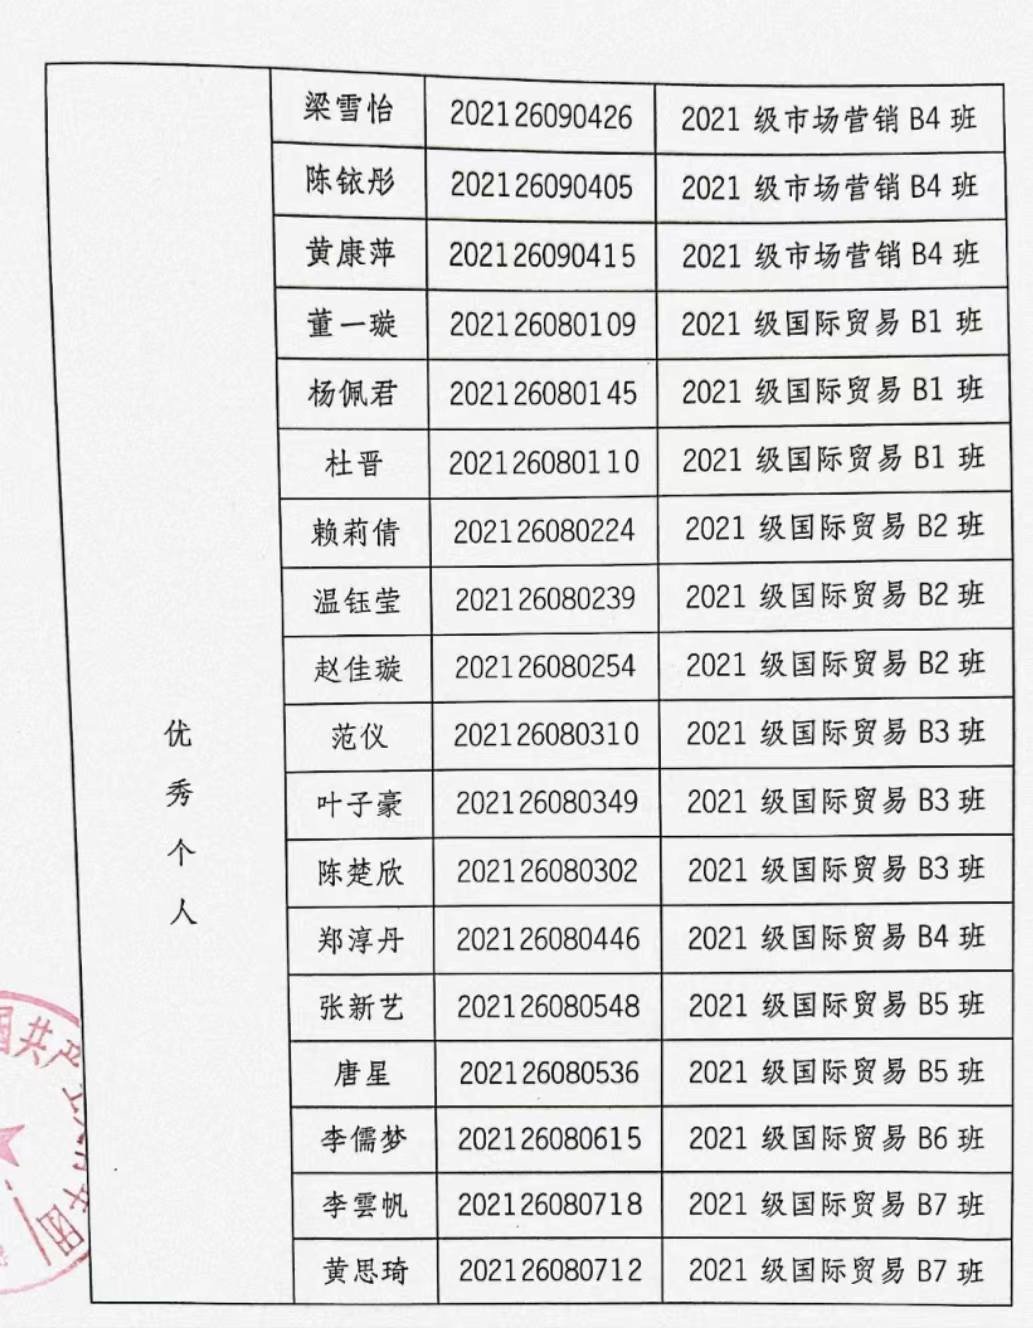 梁雪怡 202126090426 2021 级市场营销 B4 班
陈铱彤 202126090405 2021 级市场营销 B4 班
黄康萍 202126090415 2021 级市场营销 B4 班
董一璇 202126080109 2021 级国际贸易 B1 班
杨佩君 202126080145 2021 级国际贸易 B1 班
杜晋 202126080110 2021 级国际贸易 B1 班
赖莉倩 202126080224 2021 级国际贸易 B2 班
温钰莹 202126080239 2021 级国际贸易 B2 班
赵佳璇 202126080254 2021 级国际贸易 B2 班
优秀个人
范仪 202126080310 2021 级国际贸易 B3 班
叶子豪 202126080349 2021 级国际贸易 B3 班
陈楚欣 202126080302 2021 级国际贸易 B3 班
郑淳丹 202126080446 2021 级国际贸易 B4 班
张新艺 202126080548 2021 级国际贸易 B5 班
唐星 202126080536 2021 级国际贸易 B5 班
李儒梦 202126080615 2021 级国际贸易 B6 班
李雲帆 202126080718 2021 级国际贸易 B7 班
黄思琦 202126080712 2021 级国际贸易 B7 班
国共产
团